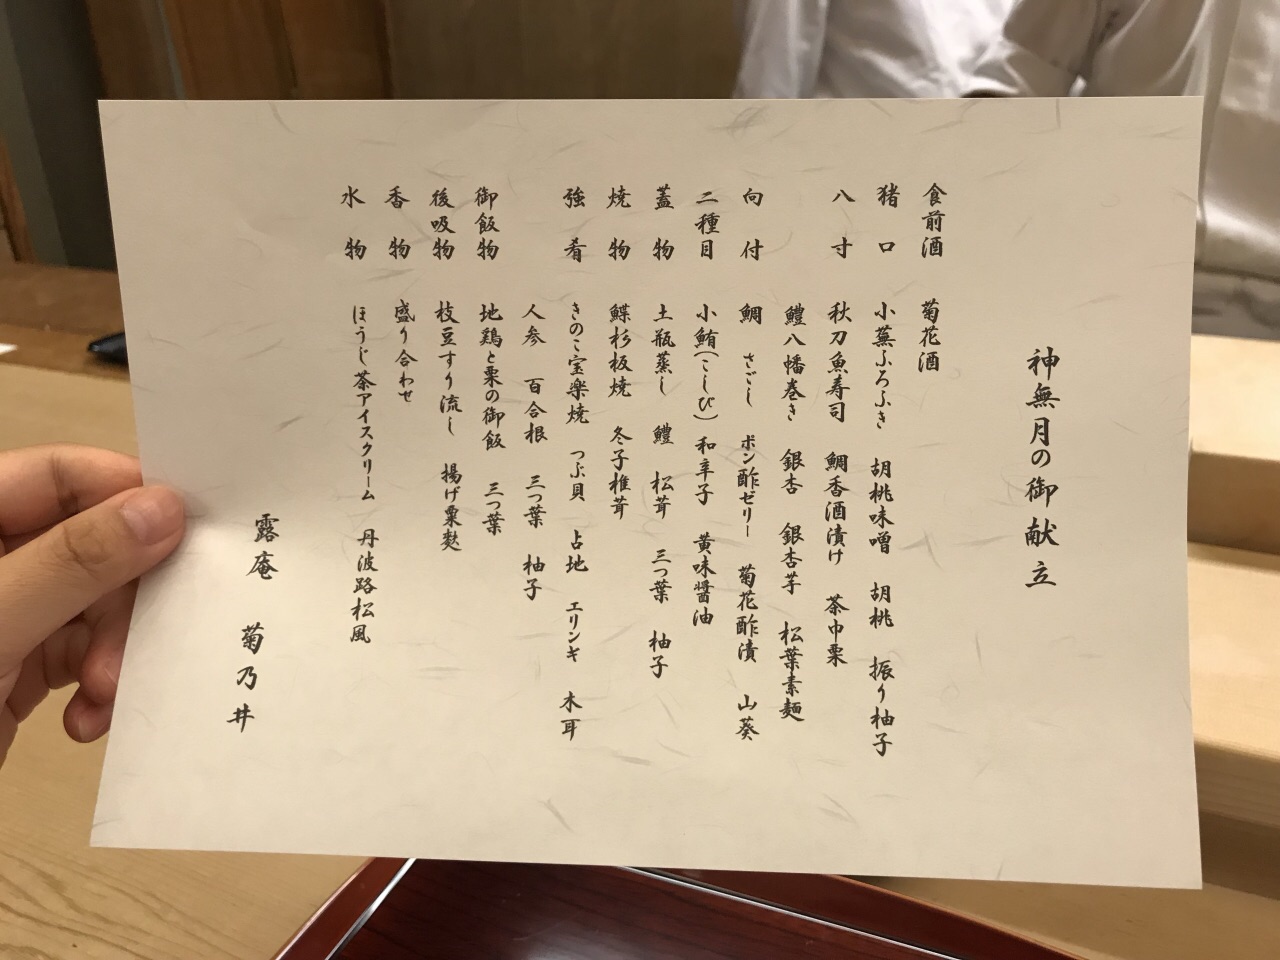 神無月の御献立
食前酒 菊花酒
猪口 小蕪ふろふき 胡桃味噌 胡桃 振り柚子
八寸 秋刀魚寿司 鯛香酒漬け 茶巾栗
鱧八幡巻き 銀杏 銀杏芋 松葉素麺
向付 鯛 さごし ポン酢ゼリー 菊花酢漬 山葵
二種目 小鮪(こしび) 和辛子 黄味醤油
蓋物 土瓶蒸し 鱧 松茸 三つ葉 柚子
焼物 鰈杉板焼 冬子椎茸
強肴 きのこ宝楽焼 つぶ貝 占地 エリンギ 木耳
人参 百合根 三つ葉 柚子
御飯物 地鶏と栗の御飯 三つ葉
後吸物 枝豆すり流し 揚げ粟麩
香物 盛り合わせ
水物 ほうじ茶アイスクリーム 丹波路松風
露庵 菊乃井